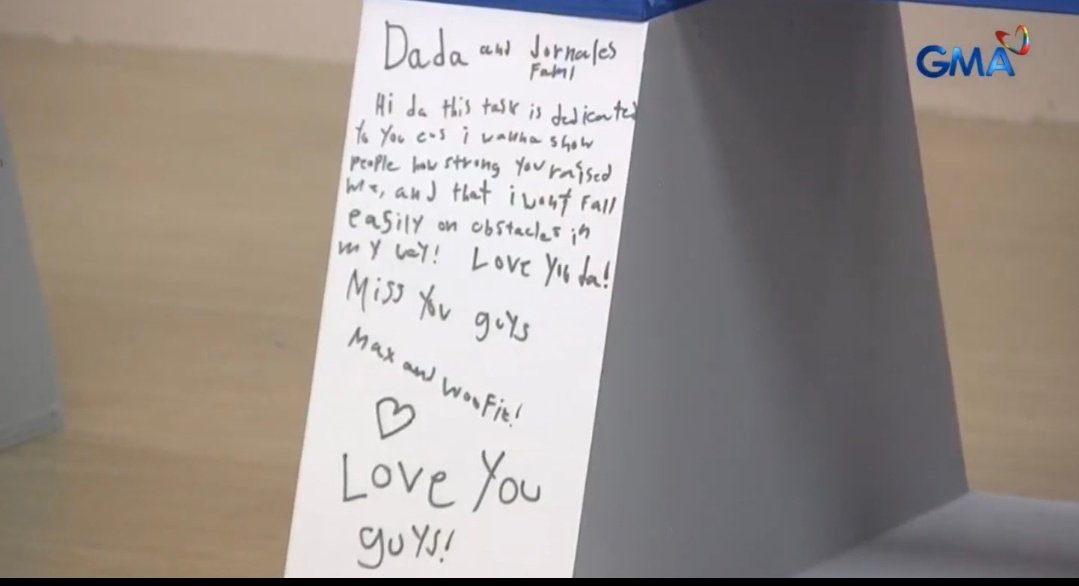 GMA
Dada and Jornales
Fam!
Hi da this task is dedicated
to you cus i wanna show
people how strong you raised
me, and that i wont fall
easily on obstacles in
my way! Love you da!
Miss you guys
Max and Woofie!
Love you
guys!